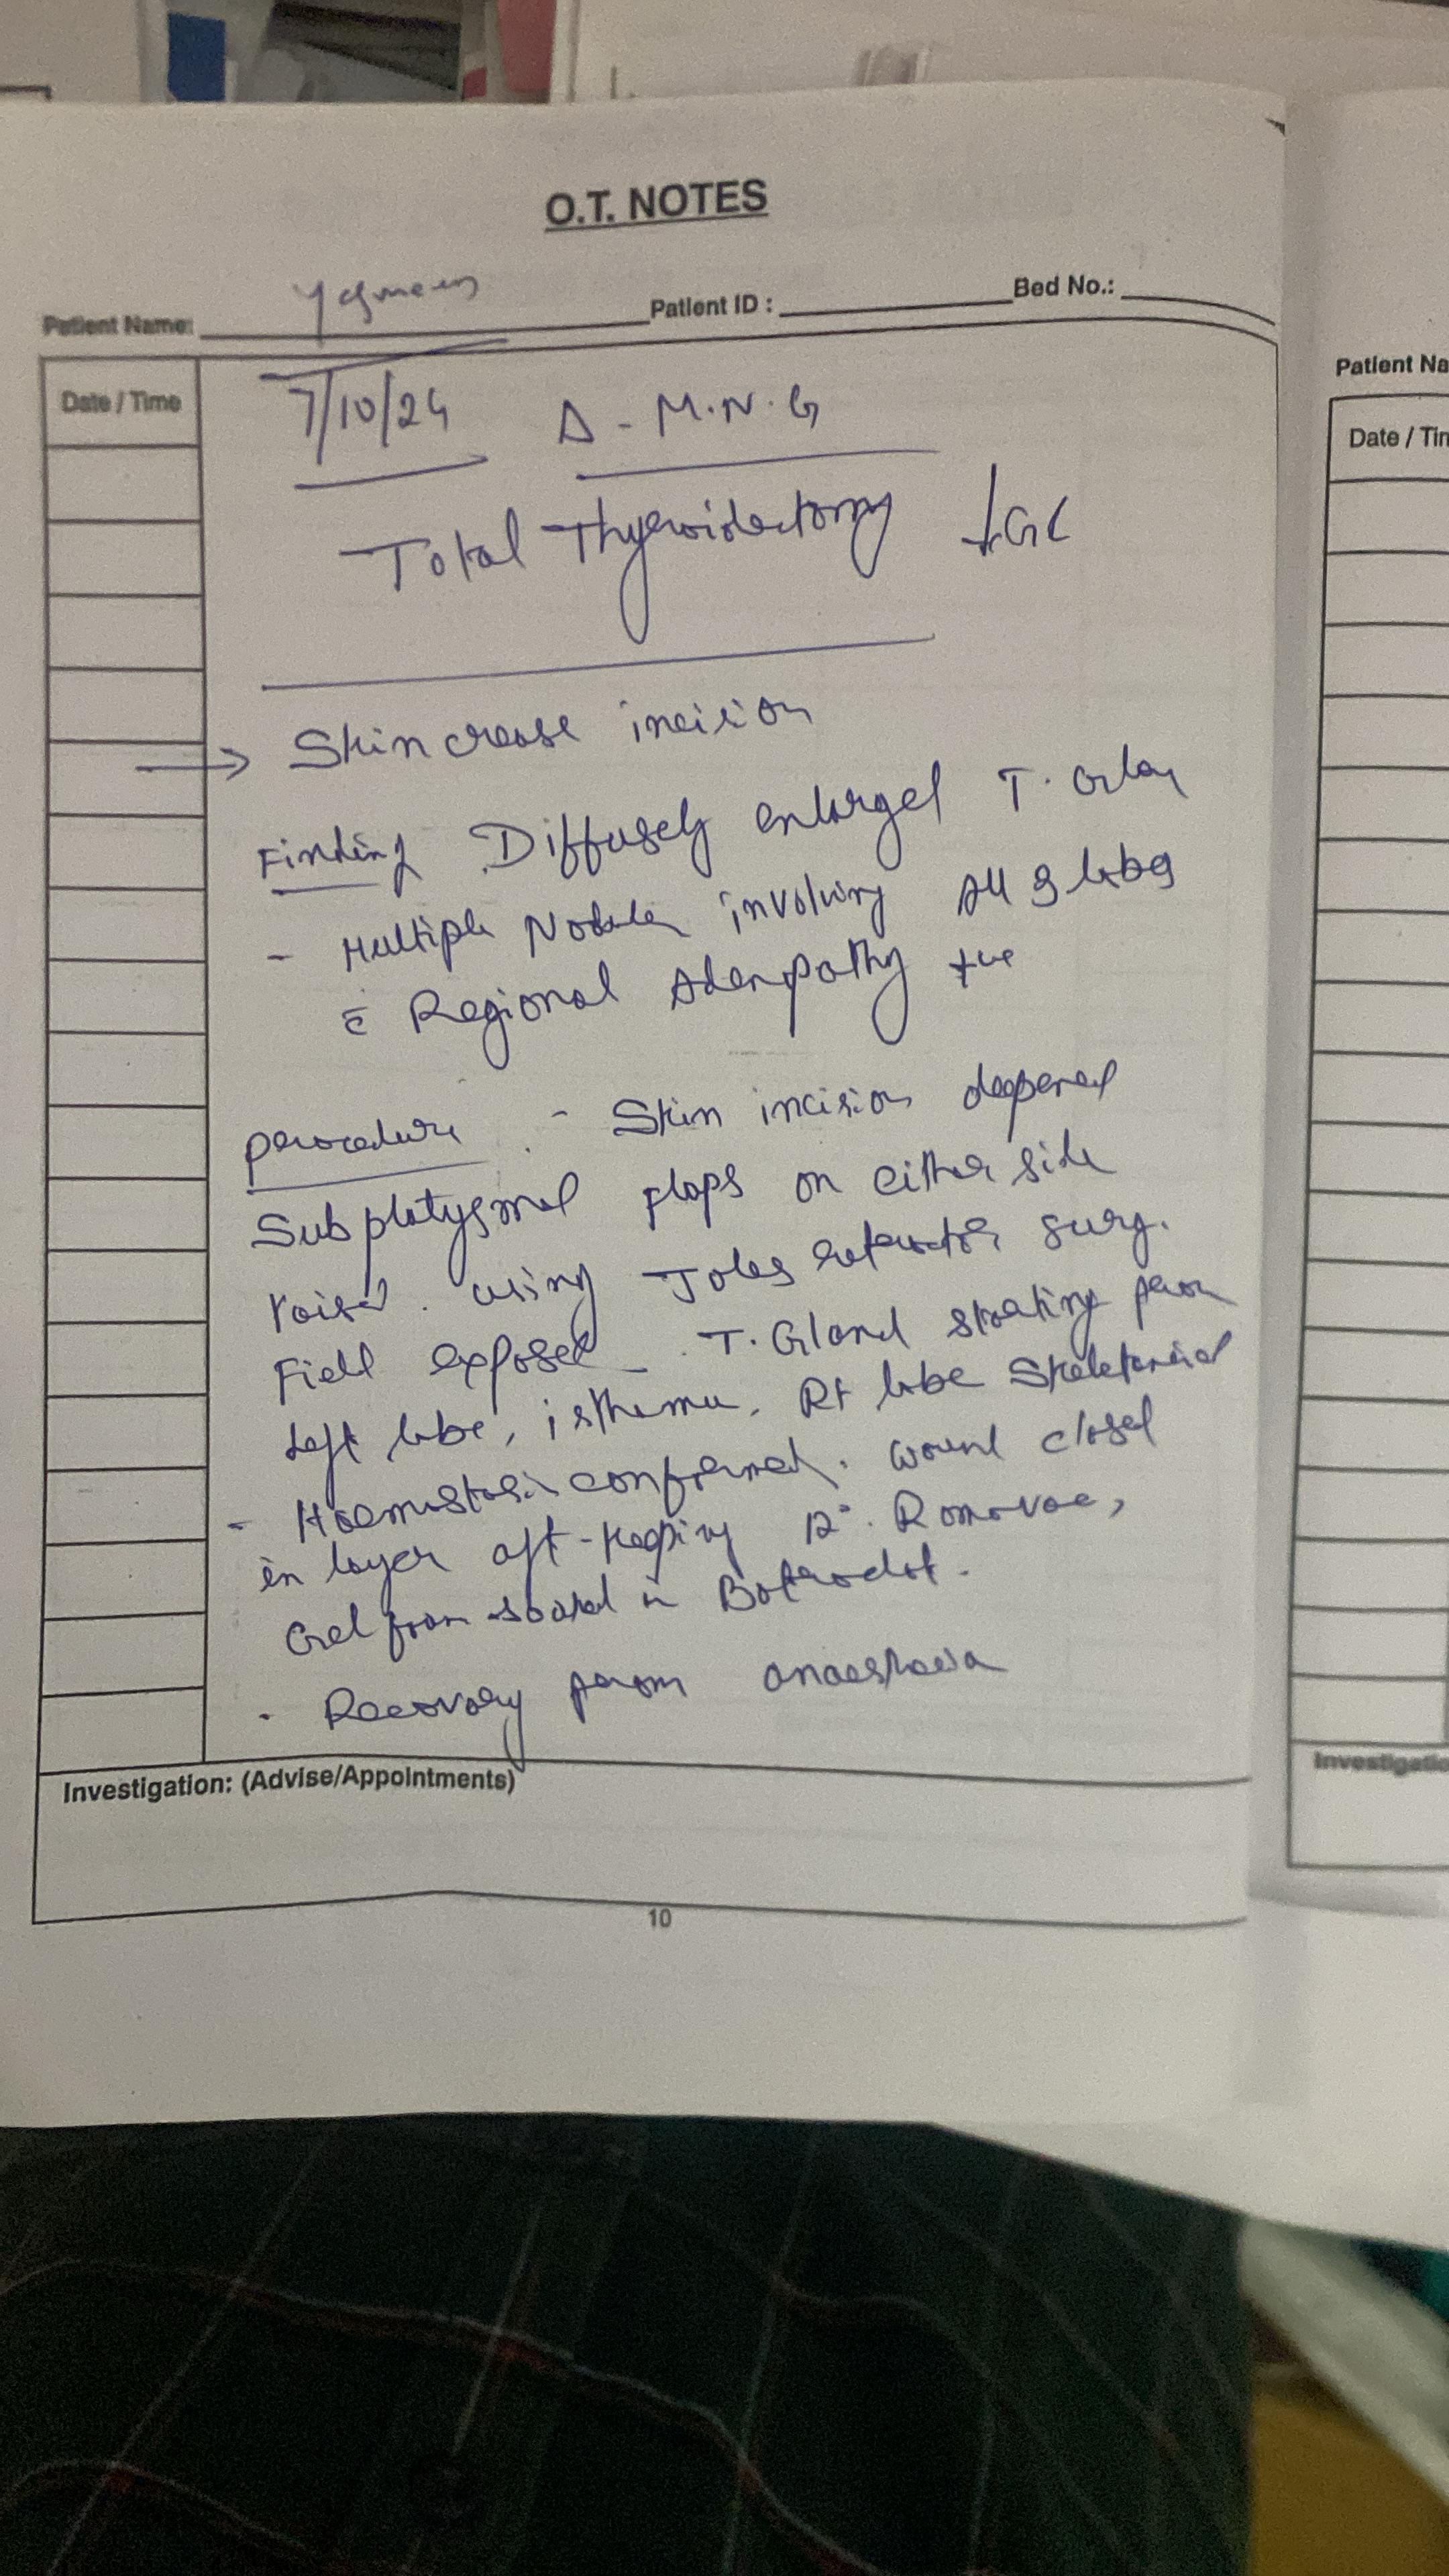 O.T. NOTES
Patient Name: Yasmeen Patient ID : Bed No.:
Date / Time
7/10/24 Δ - M.N.G
Total Thyroidectomy ↓ G
→ Skin crease incision
Finding Diffusely enlarged T.
- Multiple Nodules involving All lobes
c̄ Regional Adenopathy +ve
procedure - Skin incision deepened
Subplatysmal flaps on either side
raised. using Joles retractor surg.
Field exposed - T. Gland starting from
Left lobe, isthmus. Rt lobe Skeletonised
- Haemostasis confirmed. wound closed
in layer aft - keeping Romovac,
Gel foam soaked in
- Recovery from anaesthesia
Investigation: (Advise/Appointments)
10
Patient Na
Date / Tim
Investigatio